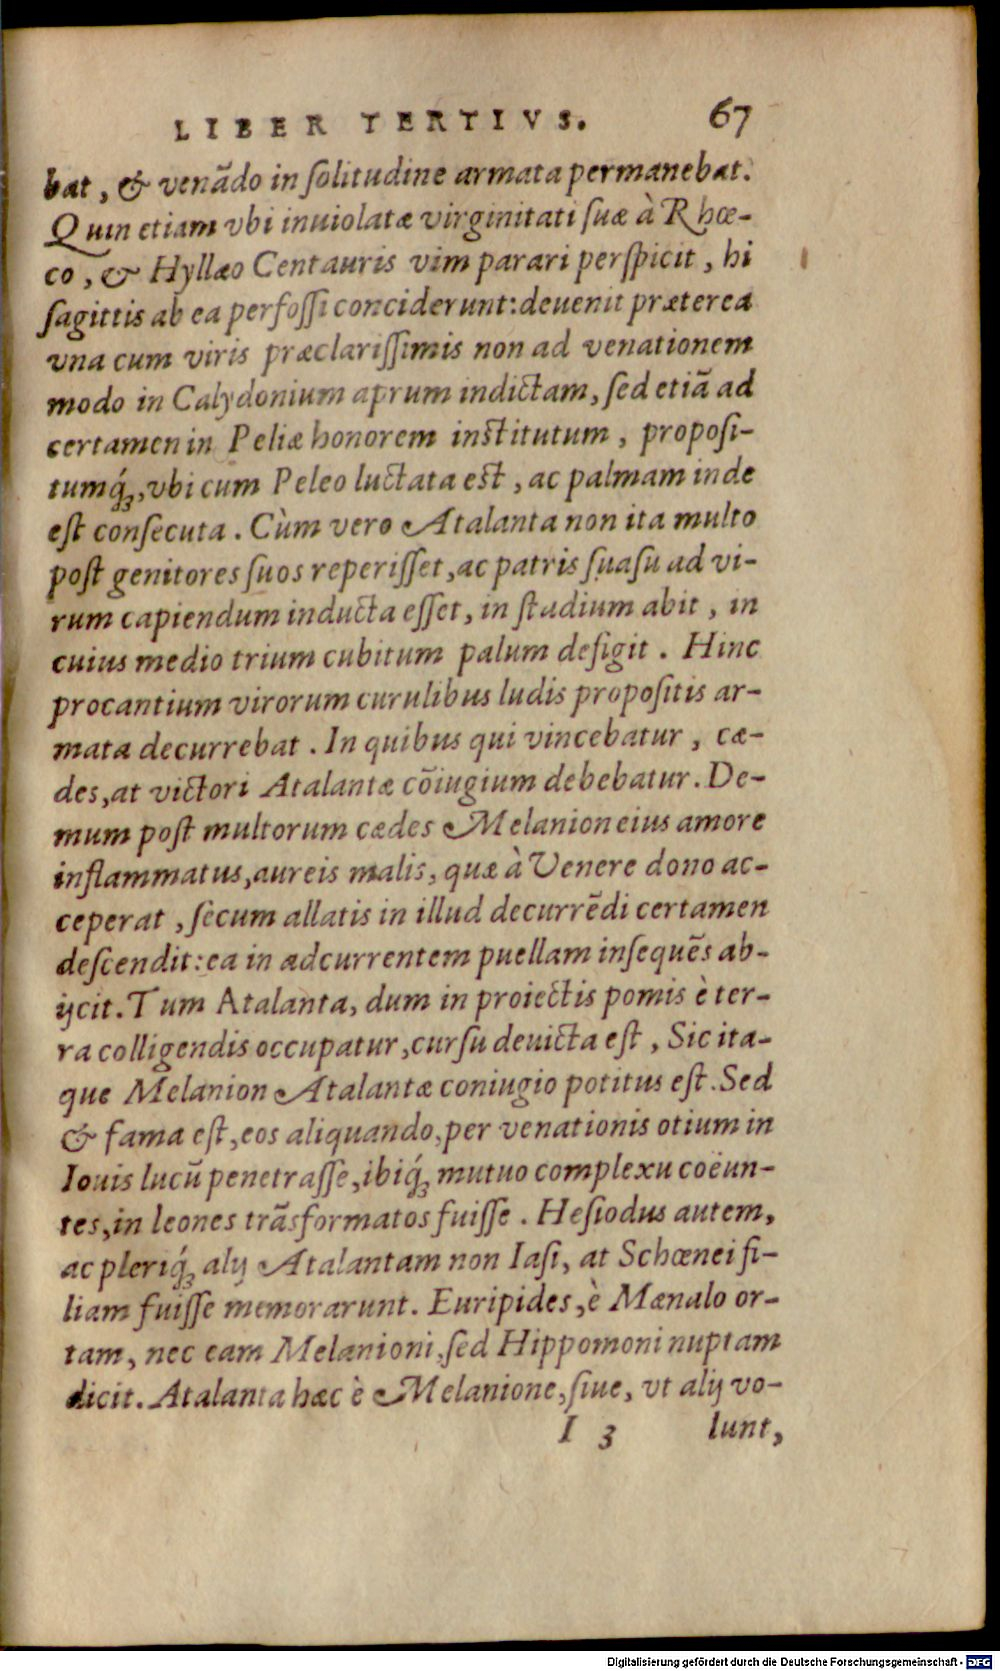 LIBER TERTIVS. 67
bat, & venãdo in ſolitudine armata permanebat.
Quin etiam vbi inuiolatæ virginitati ſuæ à Rhœ-
co, & Hyllæo Centauris vim parari perſpicit, hi
ſagittis ab ea perfoſſi conciderunt: deuenit præterea
vna cum viris præclariſſimis non ad venationem
modo in Calydonium aprum indictam, ſed etiã ad
certamen in Peliæ honorem inſtitutum, propoſi-
tumq́ꝫ, vbi cum Peleo luctata eſt, ac palmam inde
eſt conſecuta. Cùm vero Atalanta non ita multo
poſt genitores ſuos reperiſſet, ac patris ſuaſu ad vi-
rum capiendum inducta eſſet, in ſtadium abit, in
cuius medio trium cubitum palum defigit. Hinc
procantium virorum curulibus ludis propoſitis ar-
mata decurrebat. In quibus qui vincebatur, cæ-
des, at victori Atalantæ cõiugium debebatur. De-
mum poſt multorum cædes Melanion eius amore
inflammatus, aureis malis, quæ à Venere dono ac-
ceperat, ſecum allatis in illud decurrẽdi certamen
deſcendit: ea in adcurrentem puellam inſequẽs ab-
ijcit. Tum Atalanta, dum in proiectis pomis è ter-
ra colligendis occupatur, curſu deuicta eſt, Sic ita-
que Melanion Atalantæ coniugio potitus eſt. Sed
& fama eſt, eos aliquando, per venationis otium in
Iouis lucũ penetraſſe, ibiq́ꝫ mutuo complexu coëun-
tes, in leones trãsformatos fuiſſe. Heſiodus autem,
ac pleriq́ꝫ alij Atalantam non Iaſi, at Schœnei fi-
liam fuiſſe memorarunt. Euripides, è Mænalo or-
tam, nec eam Melanioni, ſed Hippomoni nuptam
dicit. Atalanta hæc è Melanione, ſiue, vt alij vo-
I 3 lunt,
Digitalisierung gefördert durch die Deutsche Forschungsgemeinschaft - DFG